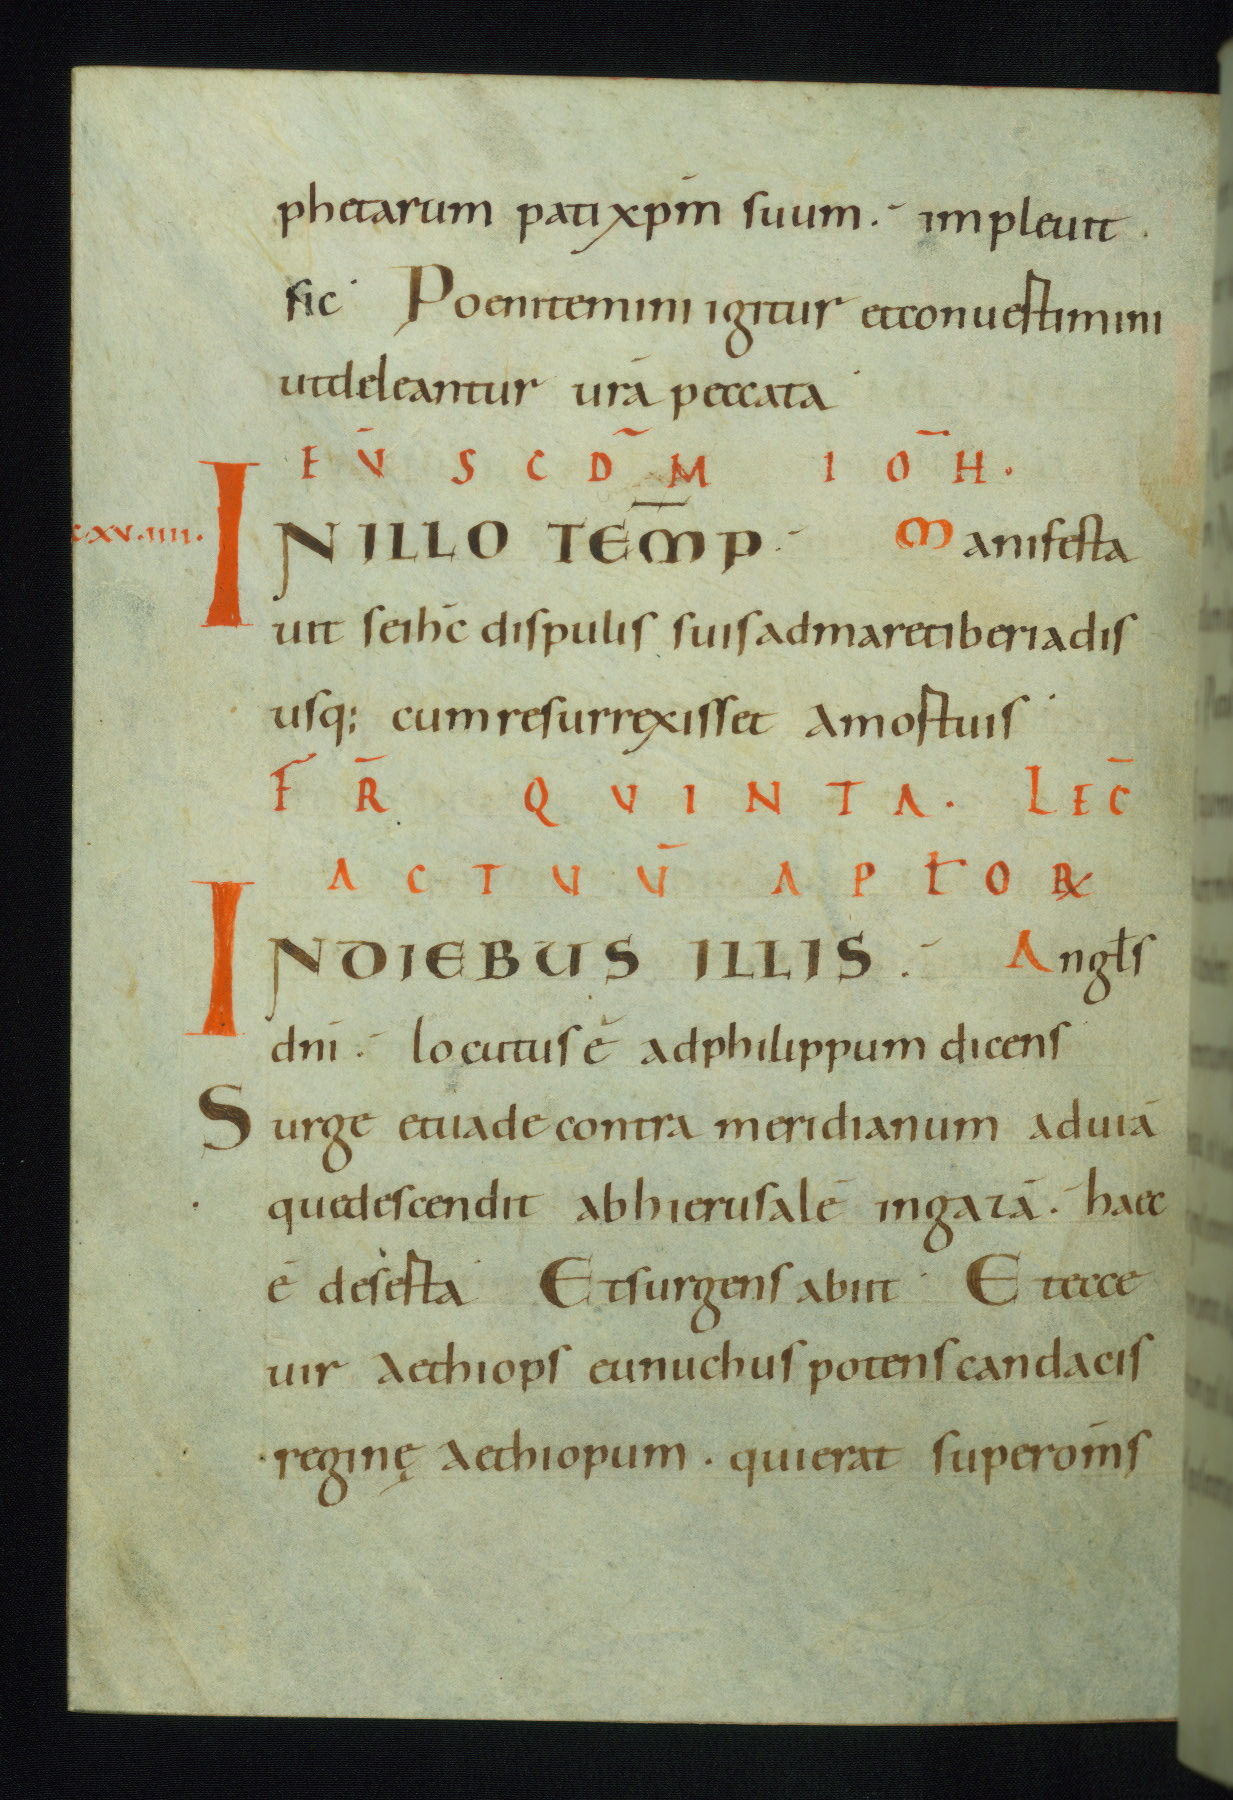 phetarum pati xp̄m suum. impleuit.
sic Poenitemini igitur etconuestimini
utdeleantur urā peccata
EV̄ SCDM̄ IOH̄.
CXV.IIII. INILLO TEM̄P Manifesta
uit seihc̄ discpulis suisadmaretiberiadis
usq; cumresurrexisset Amostuis
FR̄ QVINTA. LEC̄
ACTUŪ APŁOꝜ
INDIEBUS ILLIS. Angłs
dn̄i. locutus ē adphilippum dicens
Surge etuade contra meridianum aduiā
quedescendit abhierusalē ingazā. haec
ē deserta Etsurgens abiit Etecce
uir Aethiops eunuchus potens candacis
reginę Aethiopum. quierat superom̄s